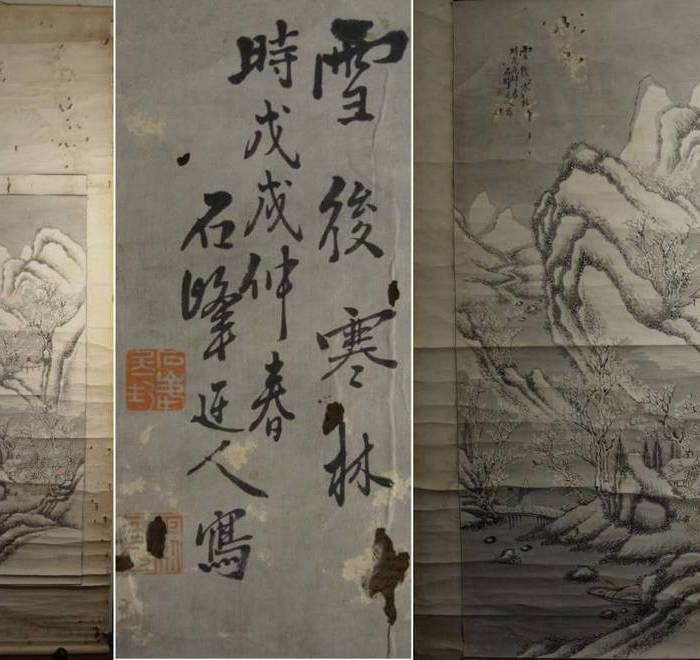 雪後寒林
時戊戌仲春
石峰迂人寫